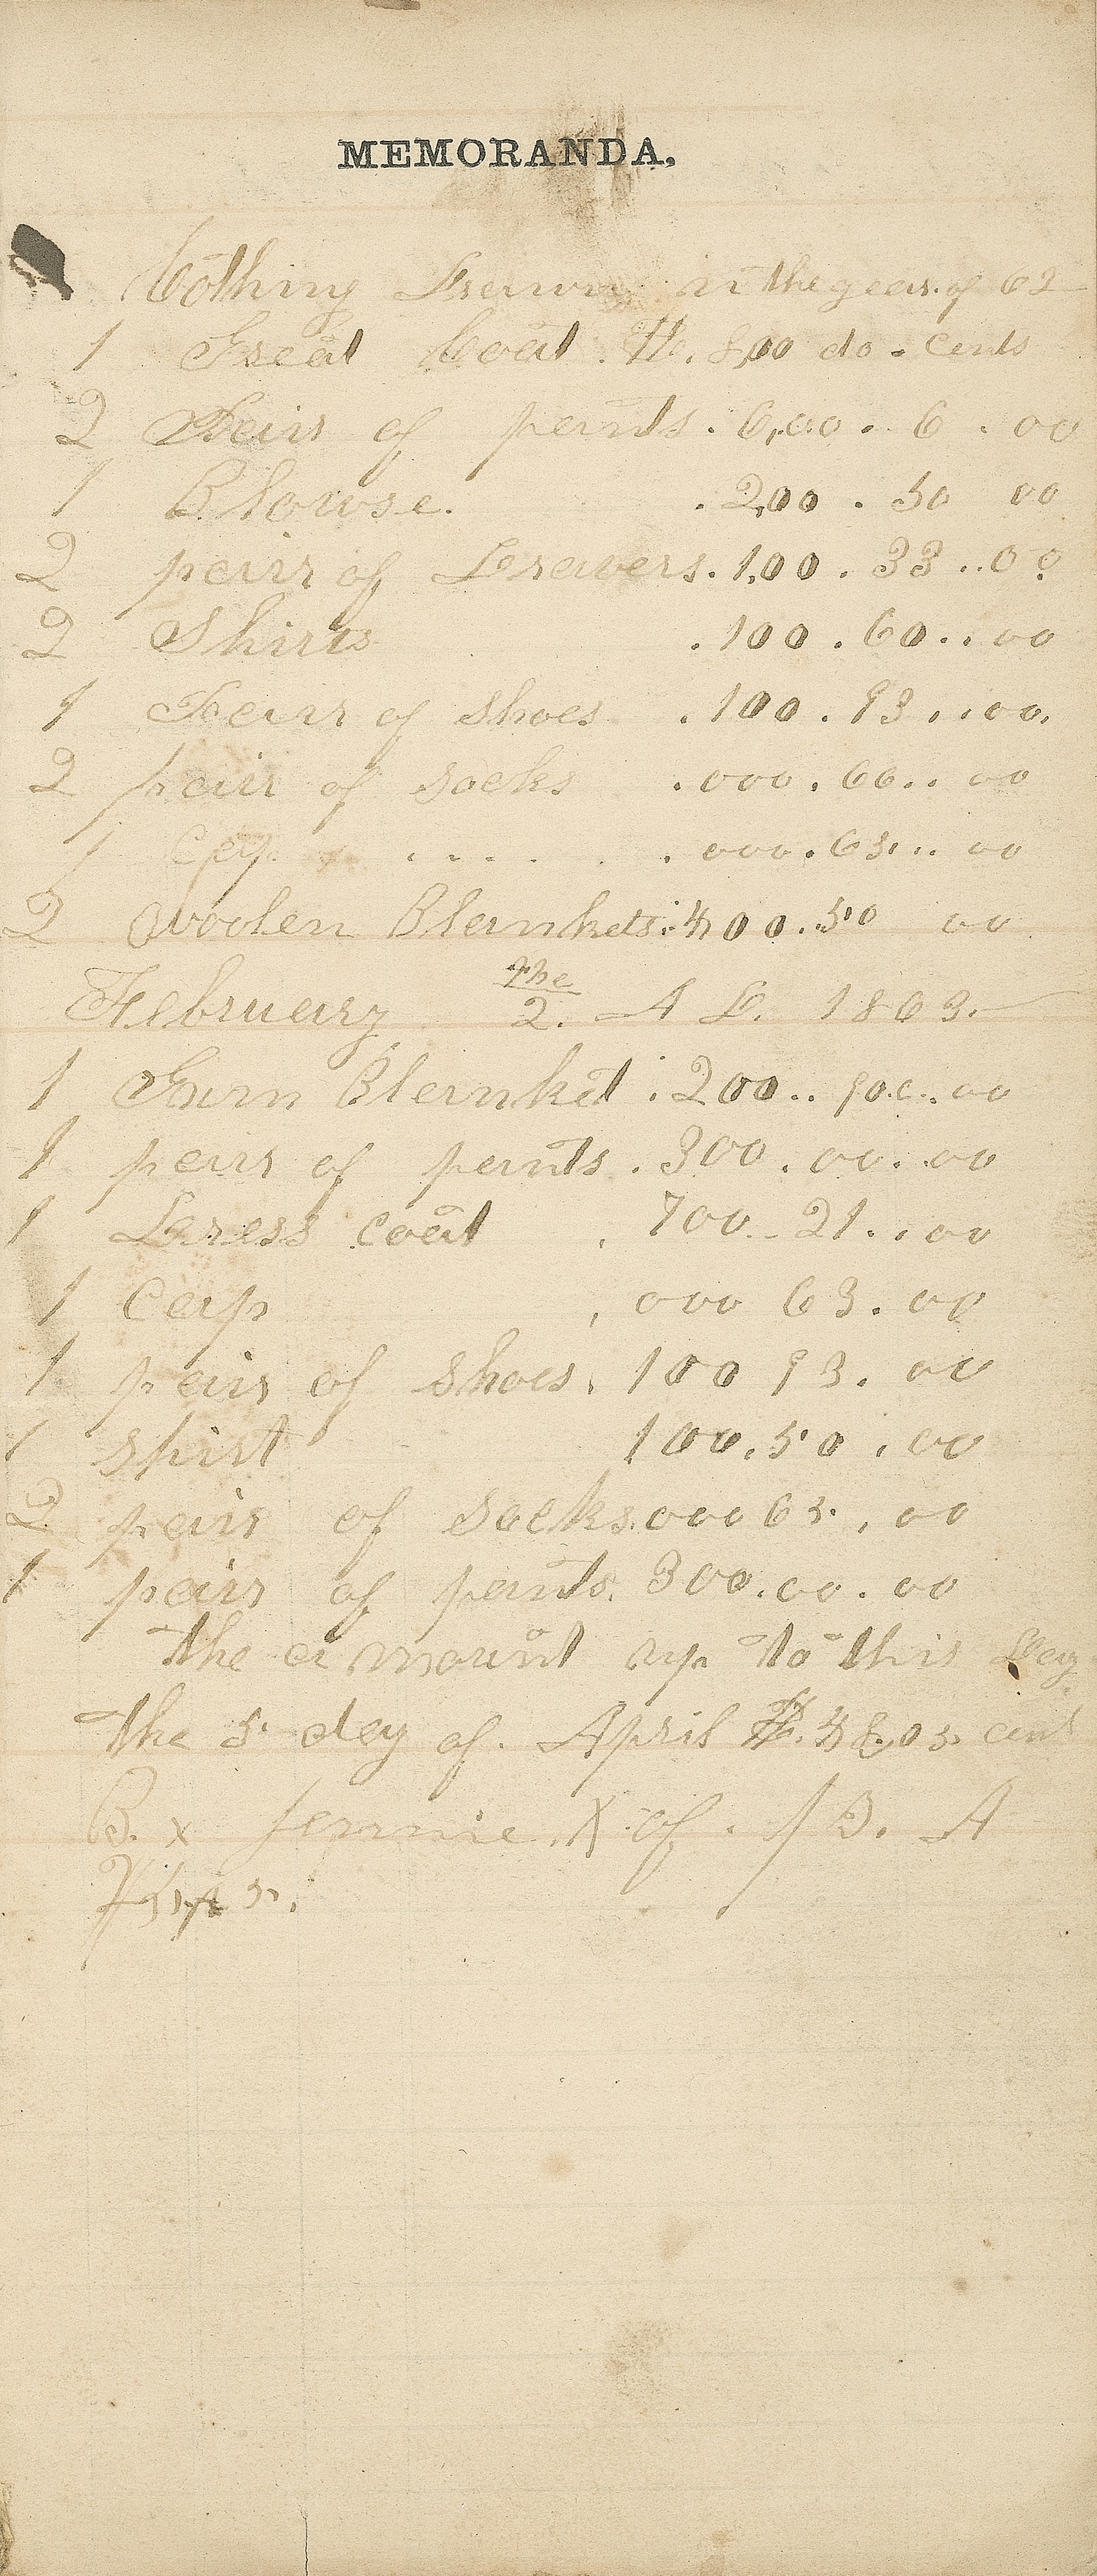 MEMORANDA.
Cothing Drawn in the year of 62
1 Great Coat. $. 8,00 do. cents
2 Peair of pants. 6,00. 6. 00
1 Blowse. . 2,00. 50 00
2 peair of Drawers. 1,00. 33..00
2 Shirts . 100. 60...00
1 Peair of Shoes . 100. 93...00.
2 peair of Socks . 000. 66.. 00
1 Cap .... . . 000. 63... 00
2 Woolen Blankets. 400. 50 00
February the 2. A D. 1863.
1 Gum Blanket. 200.. 00
1 peair of pants. 300. 00. 00
1 Dress Coat , 700. 21... 00
1 Cap , 000 63. 00
1 peair of Shoes, 100 93. 00
1 Shirt 100. 50. 00
2 peair of Socks. 000 65., 00
1 peair of pants. 300. 00. 00
the a mount up to this Day
the 5 day of. April $. 48,05. cent
B. x of. B. A